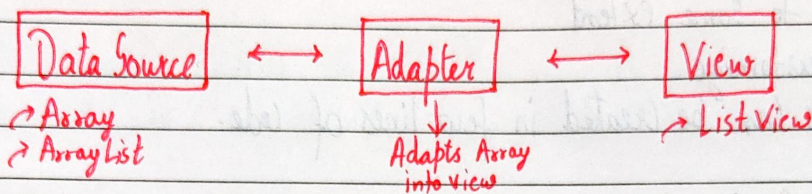 Data Source ↔ Adapter ↔ View
→ Array
→ ArrayList
↓
Adapts Array
into view
→ ListView